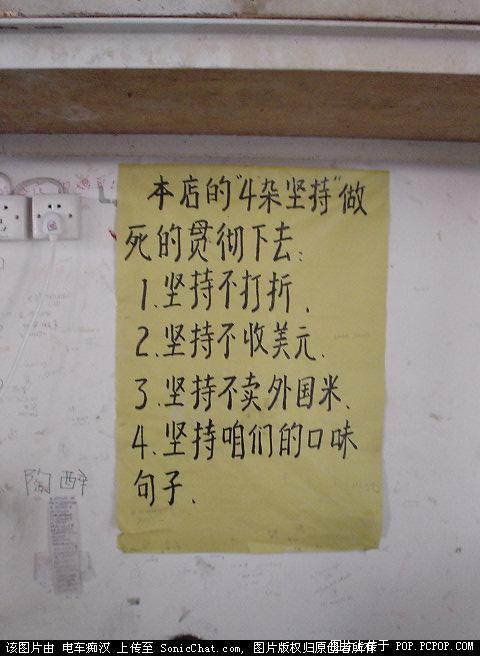 本店的"4杂坚持"做
死的贯彻下去:
1.坚持不打折.
2.坚持不收美元.
3.坚持不卖外国米.
4.坚持咱们的口味
句子.
陶醉
该图片由 电车痴汉 上传至 SonicChat.com, 图片版权归原创者所有
PCPOP.COM